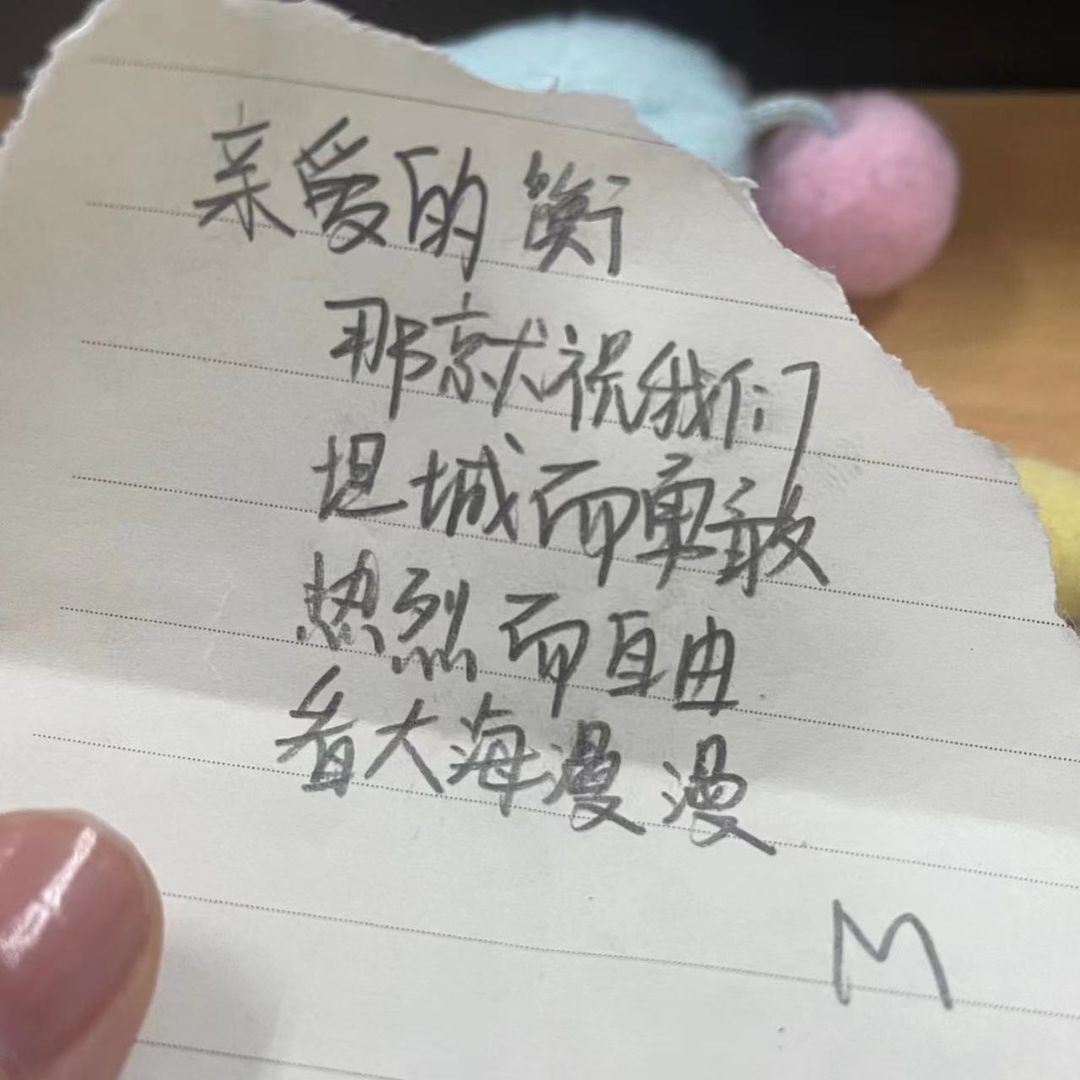 亲爱的衡
那就祝我们
坦城而勇敢
热烈而自由
看大海漫漫
M